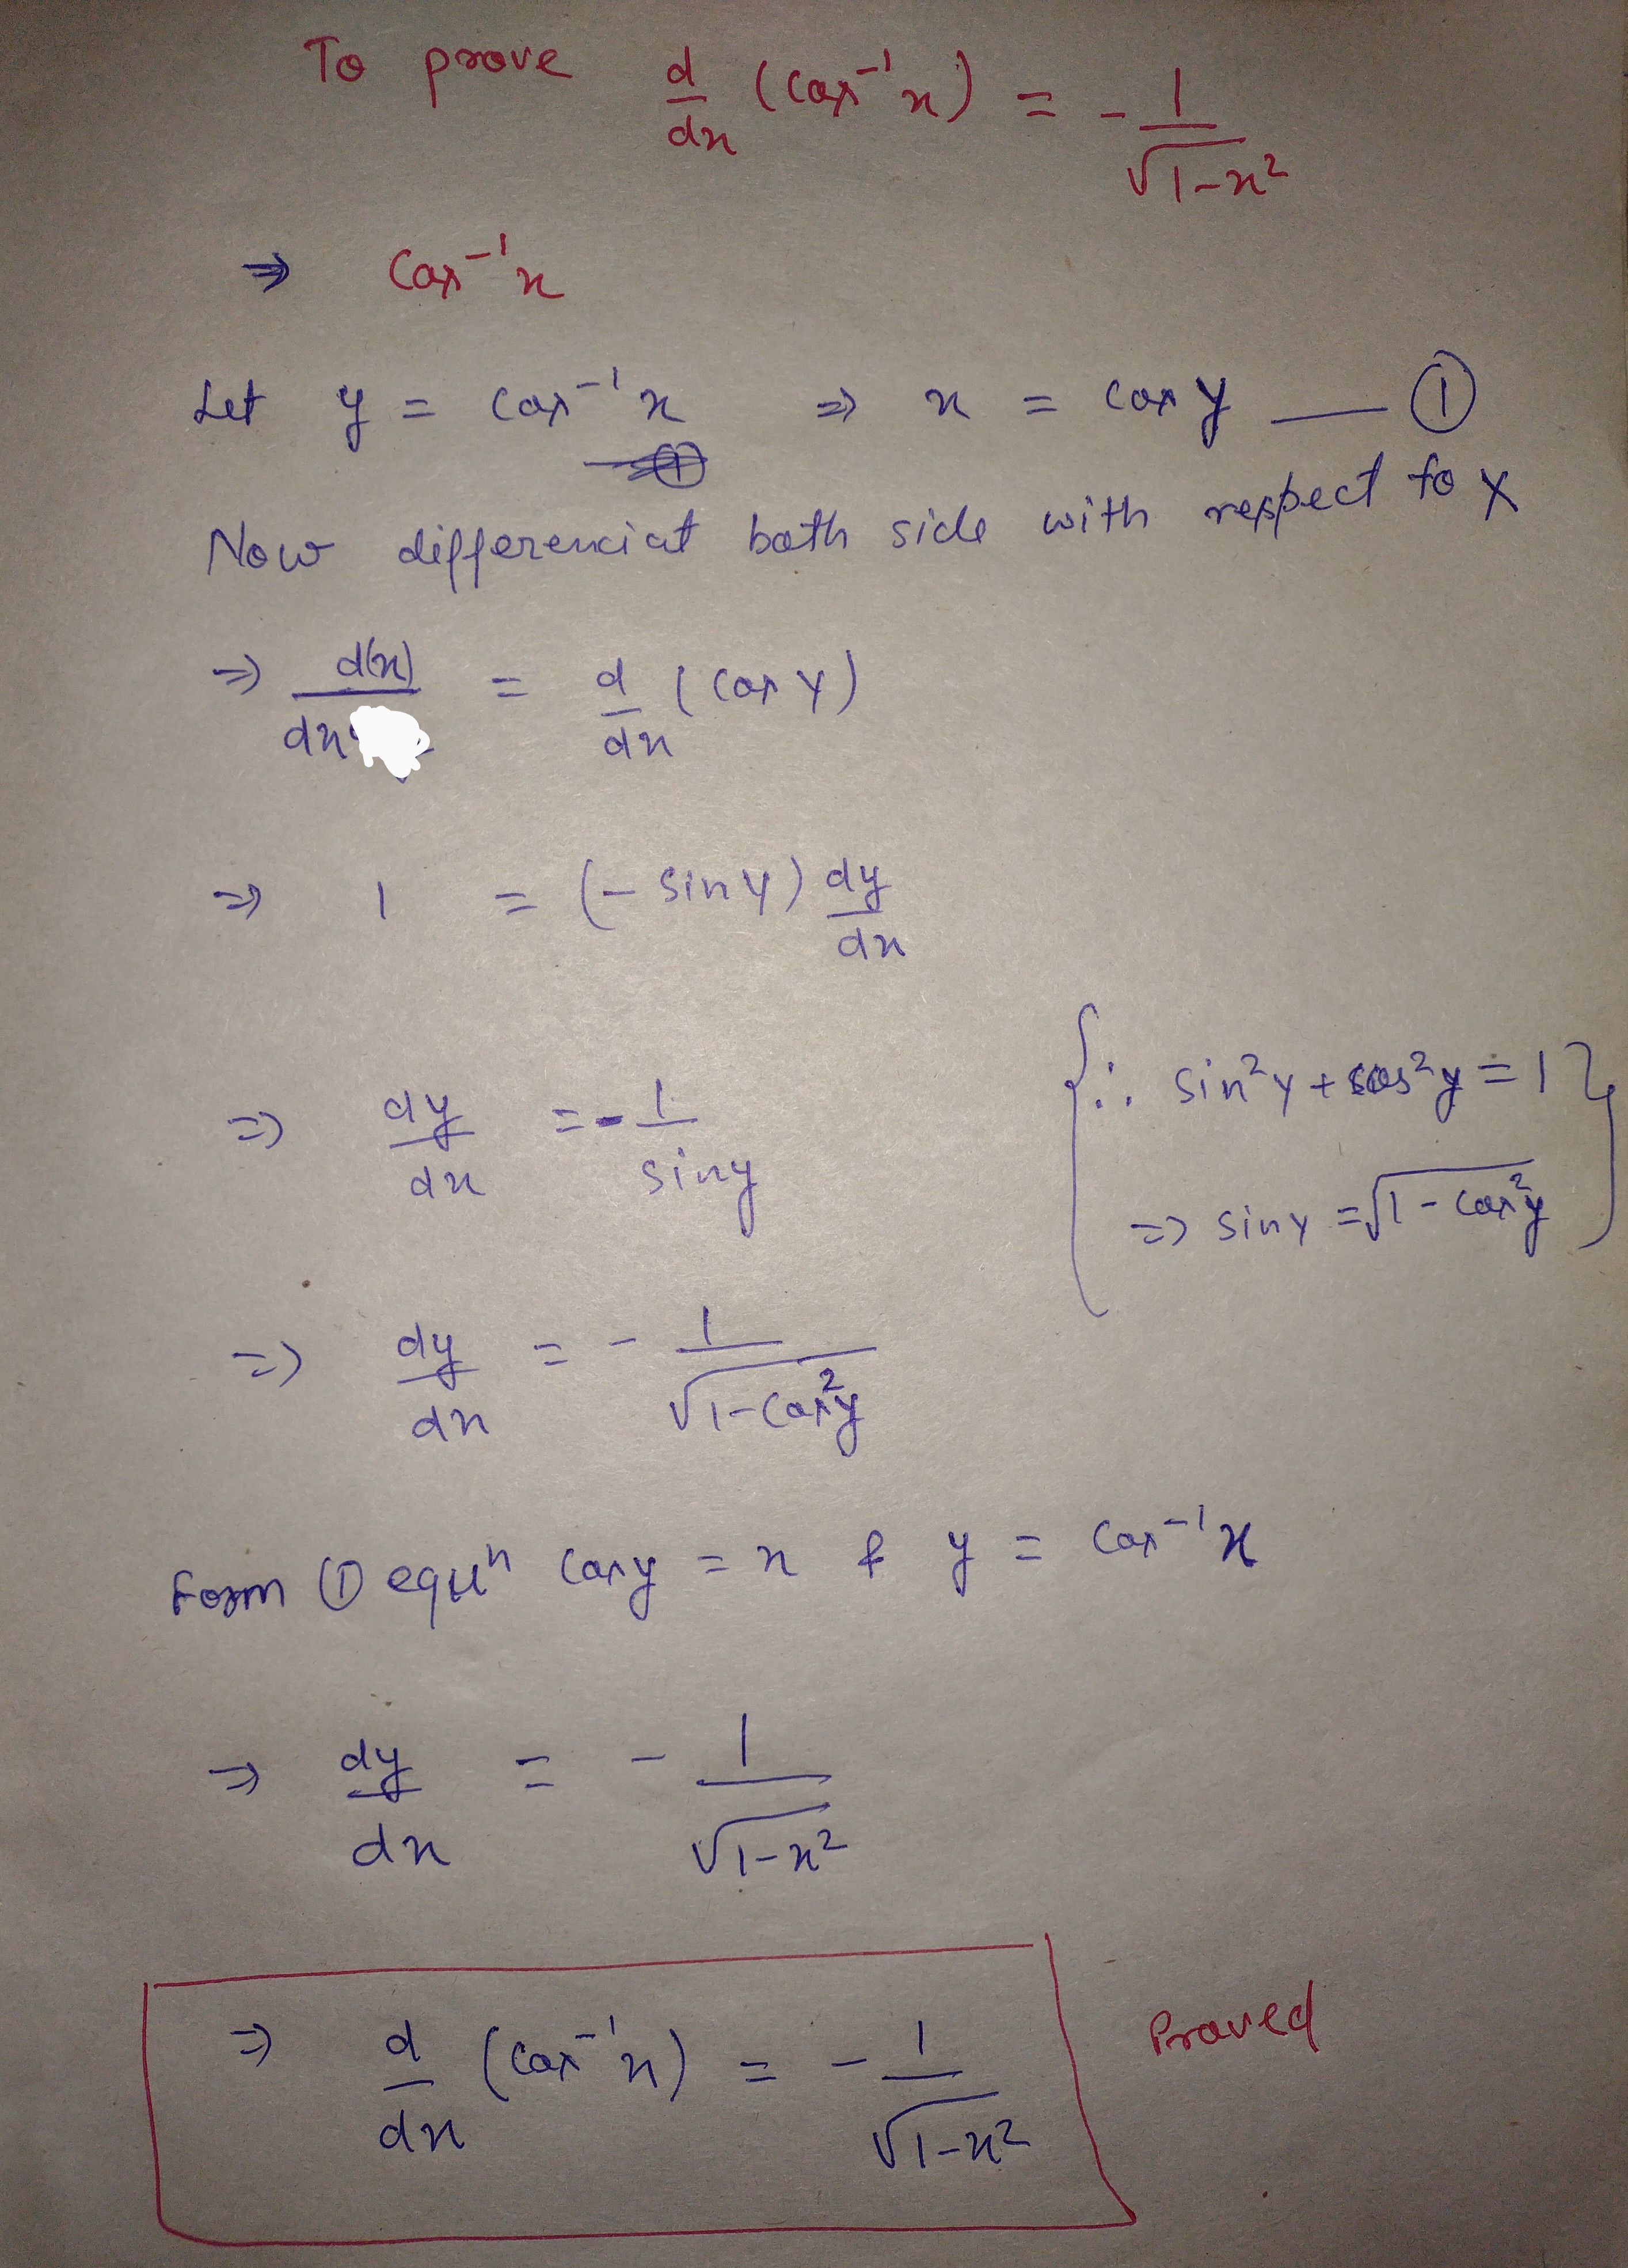 To prove d/dx (cos⁻¹x) = - 1/√1-x²
⇒ cos⁻¹x
Let y = cos⁻¹x ⇒ x = cos y — ①
Now differenciat both side with respect to x
⇒ d(x)/dx = d/dx (cos y)
⇒ 1 = (- sin y) dy/dx
⇒ dy/dx = - 1/sin y
{∴ sin²y + cos²y = 1}
⇒ sin y = √1 - cos²y
⇒ dy/dx = - 1/√1-cos²y
Form ① equⁿ cos y = x & y = cos⁻¹x
⇒ dy/dx = - 1/√1-x²
⇒ d/dx (cos⁻¹x) = - 1/√1-x² Proved